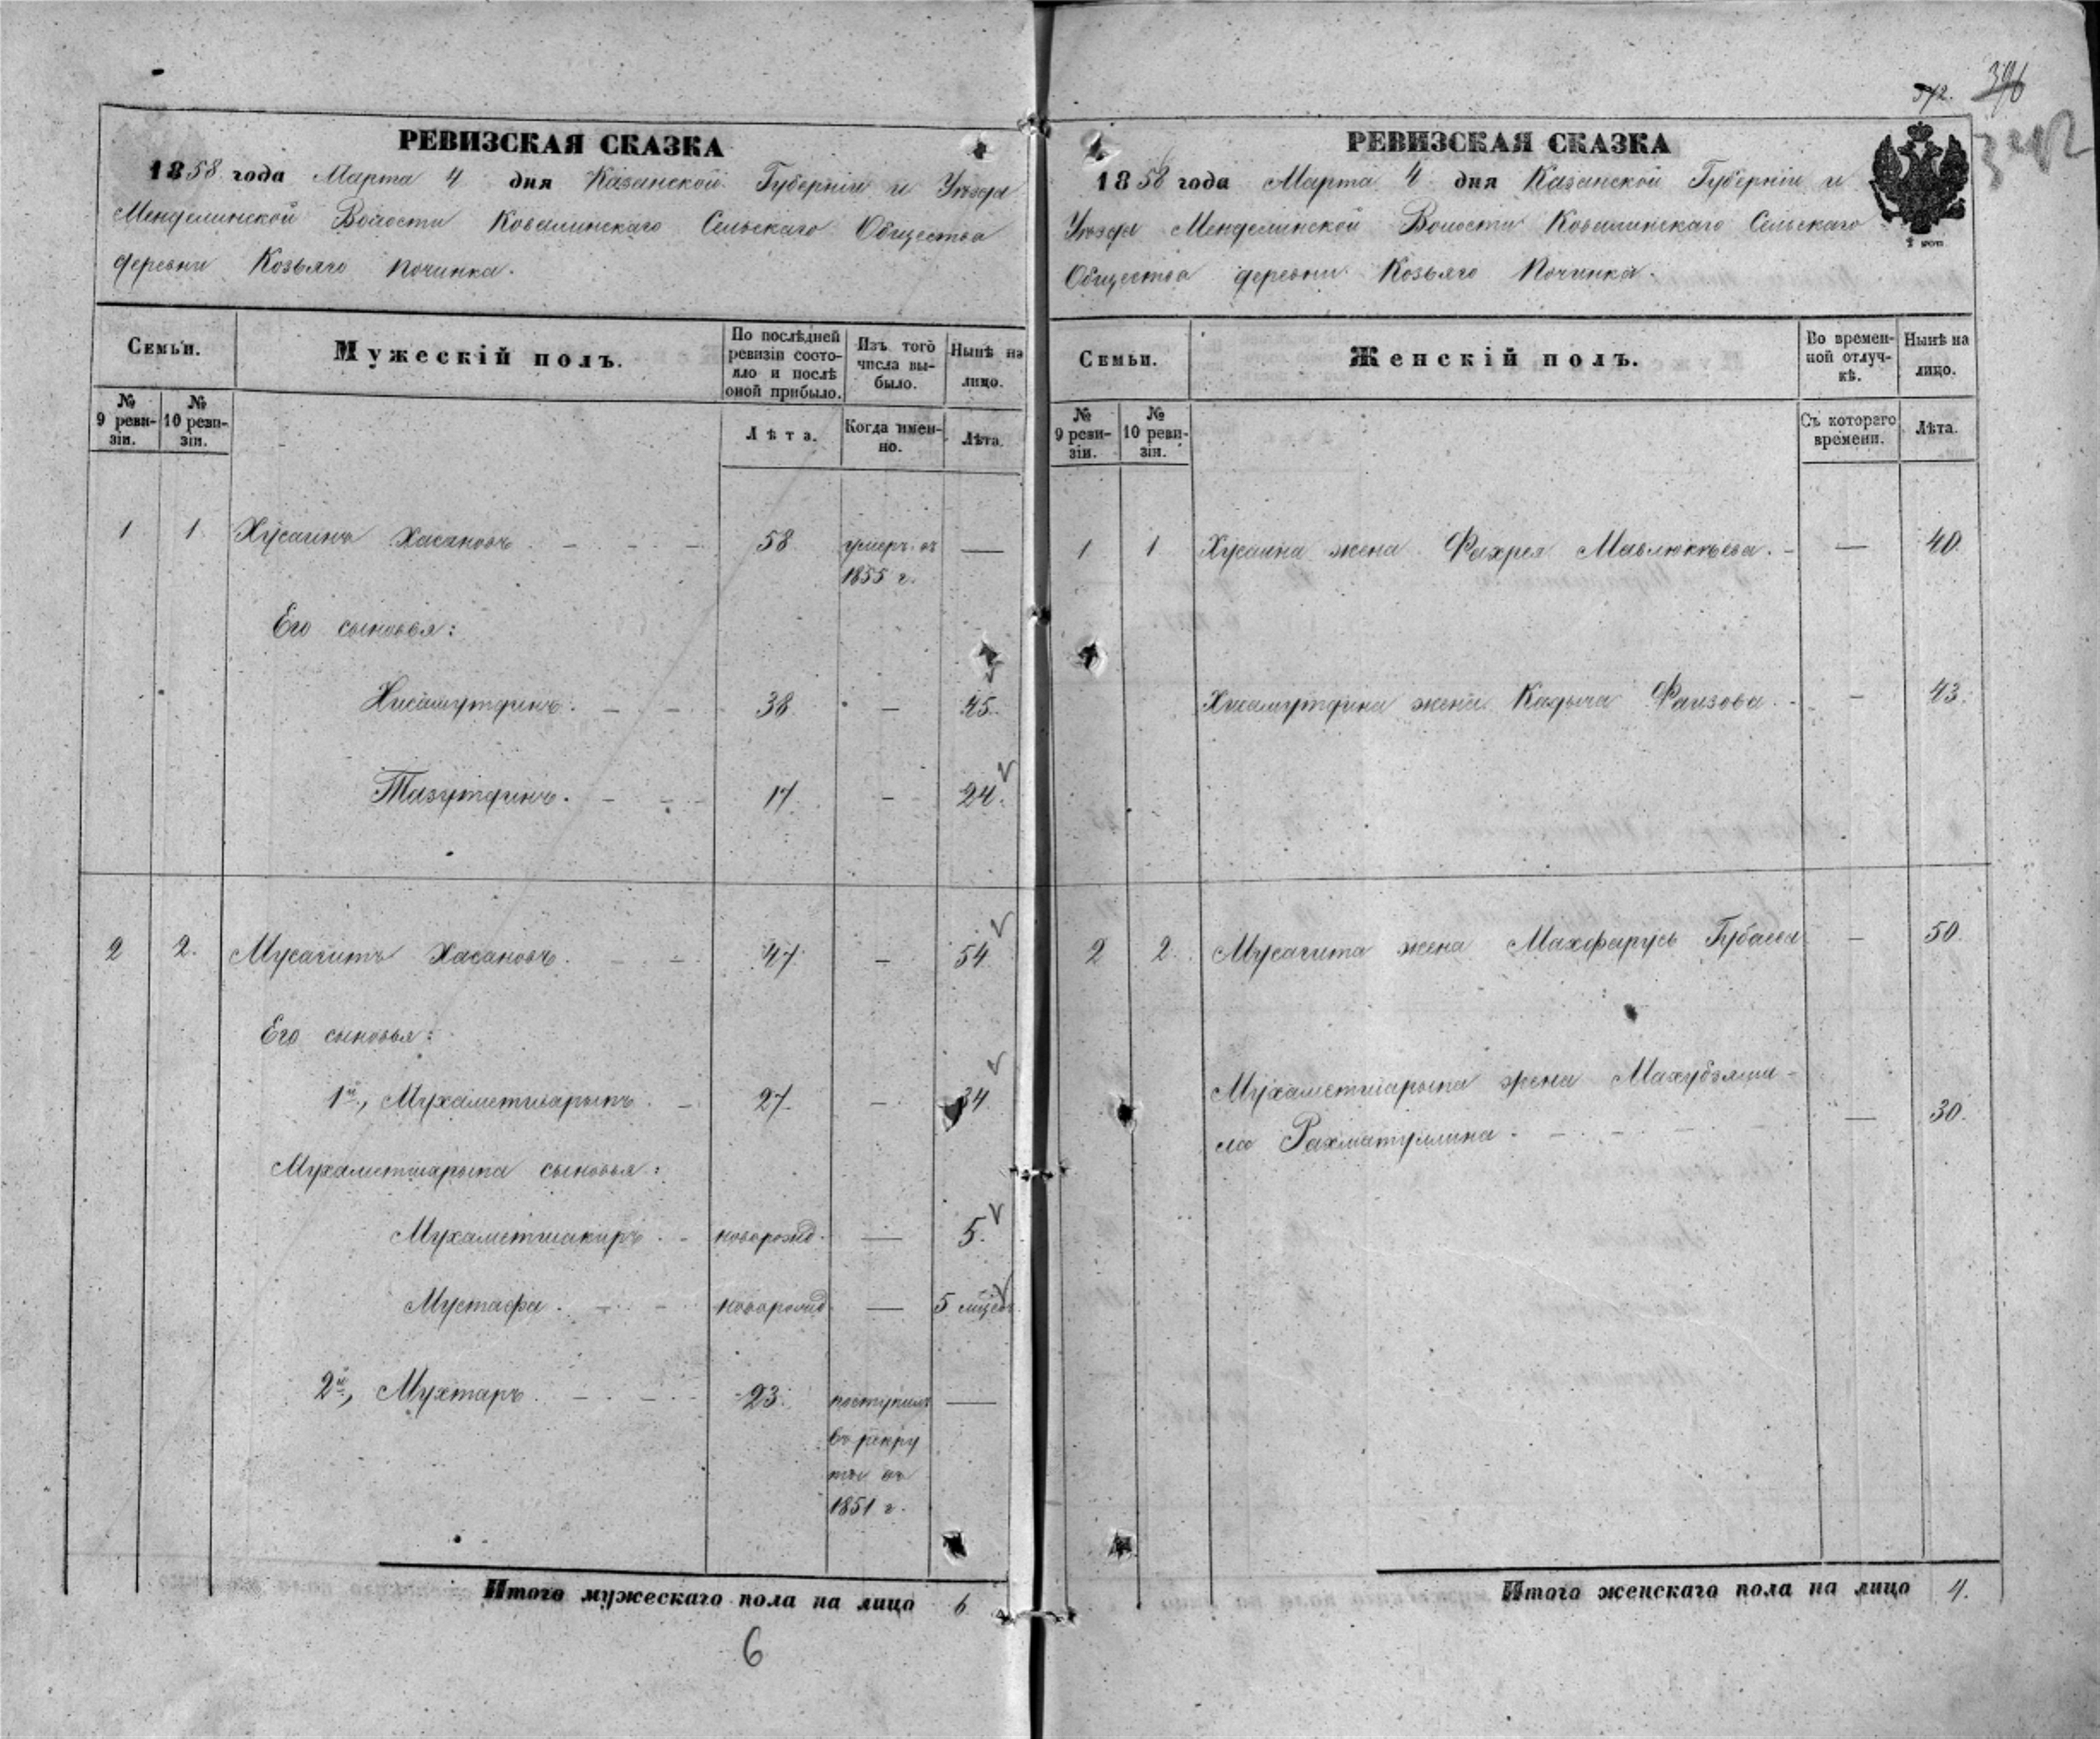 372. 396
342
РЕВИЗСКАЯ СКАЗКА
1858 года Марта 4 дня Казанской Губерніи и Уѣзда
Менделинской Волости Ковалинскаго Сельскаго Общества
деревни Козьяго Починка.
Семьи.
Мужескій полъ.
По послѣдней ревизіи состояло и послѣ оной прибыло.
Изъ того числа выбыло.
Нынѣ на лицо.
№ 9 ревизіи.
№ 10 ревизіи.
Лѣта.
Когда именно.
Лѣта.
1 1 Хусаинъ Хасановъ. 58 умеръ въ —
1855 г.
Его сыновья:
Хисамутдинъ. 38 — 45.
Тазутдинъ. 17 — 24.
2 2. Мусагитъ Хасановъ. 47 — 54
Его сыновья:
1й, Мухаметшарыпъ. 27 — 34
Мухаметшарыпа сыновья:
Мухаметшакиръ. новорожд. — 5.
Мустафа. новорожд. — 5 мѣсец.
2й, Мухтаръ. 23. поступилъ —
въ рекру
ты въ
1851 г.
Итого мужескаго пола на лицо 6
6
РЕВИЗСКАЯ СКАЗКА
1858 года Марта 4 дня Казанской Губерніи и
Уѣзда Менделинской Волости Ковалинскаго Сельскаго
Общества деревни Козьяго Починка.
2 коп
Семьи.
Женскій полъ.
Во временной отлучкѣ.
Нынѣ на лицо.
№ 9 ревизіи.
№ 10 ревизіи.
Съ котораго времени.
Лѣта.
1 1 Хусаина жена Фахрея Мавлюкѣева. — 40.
Хисамутдина жена Кадыча Фаизова. — 43.
2 2. Мусагита жена Махфарусь Губаева — 50.
Мухаметшарыпа жена Махубзяма-
ла Рахматуллина. — 30.
Итого женскаго пола на лицо 4.